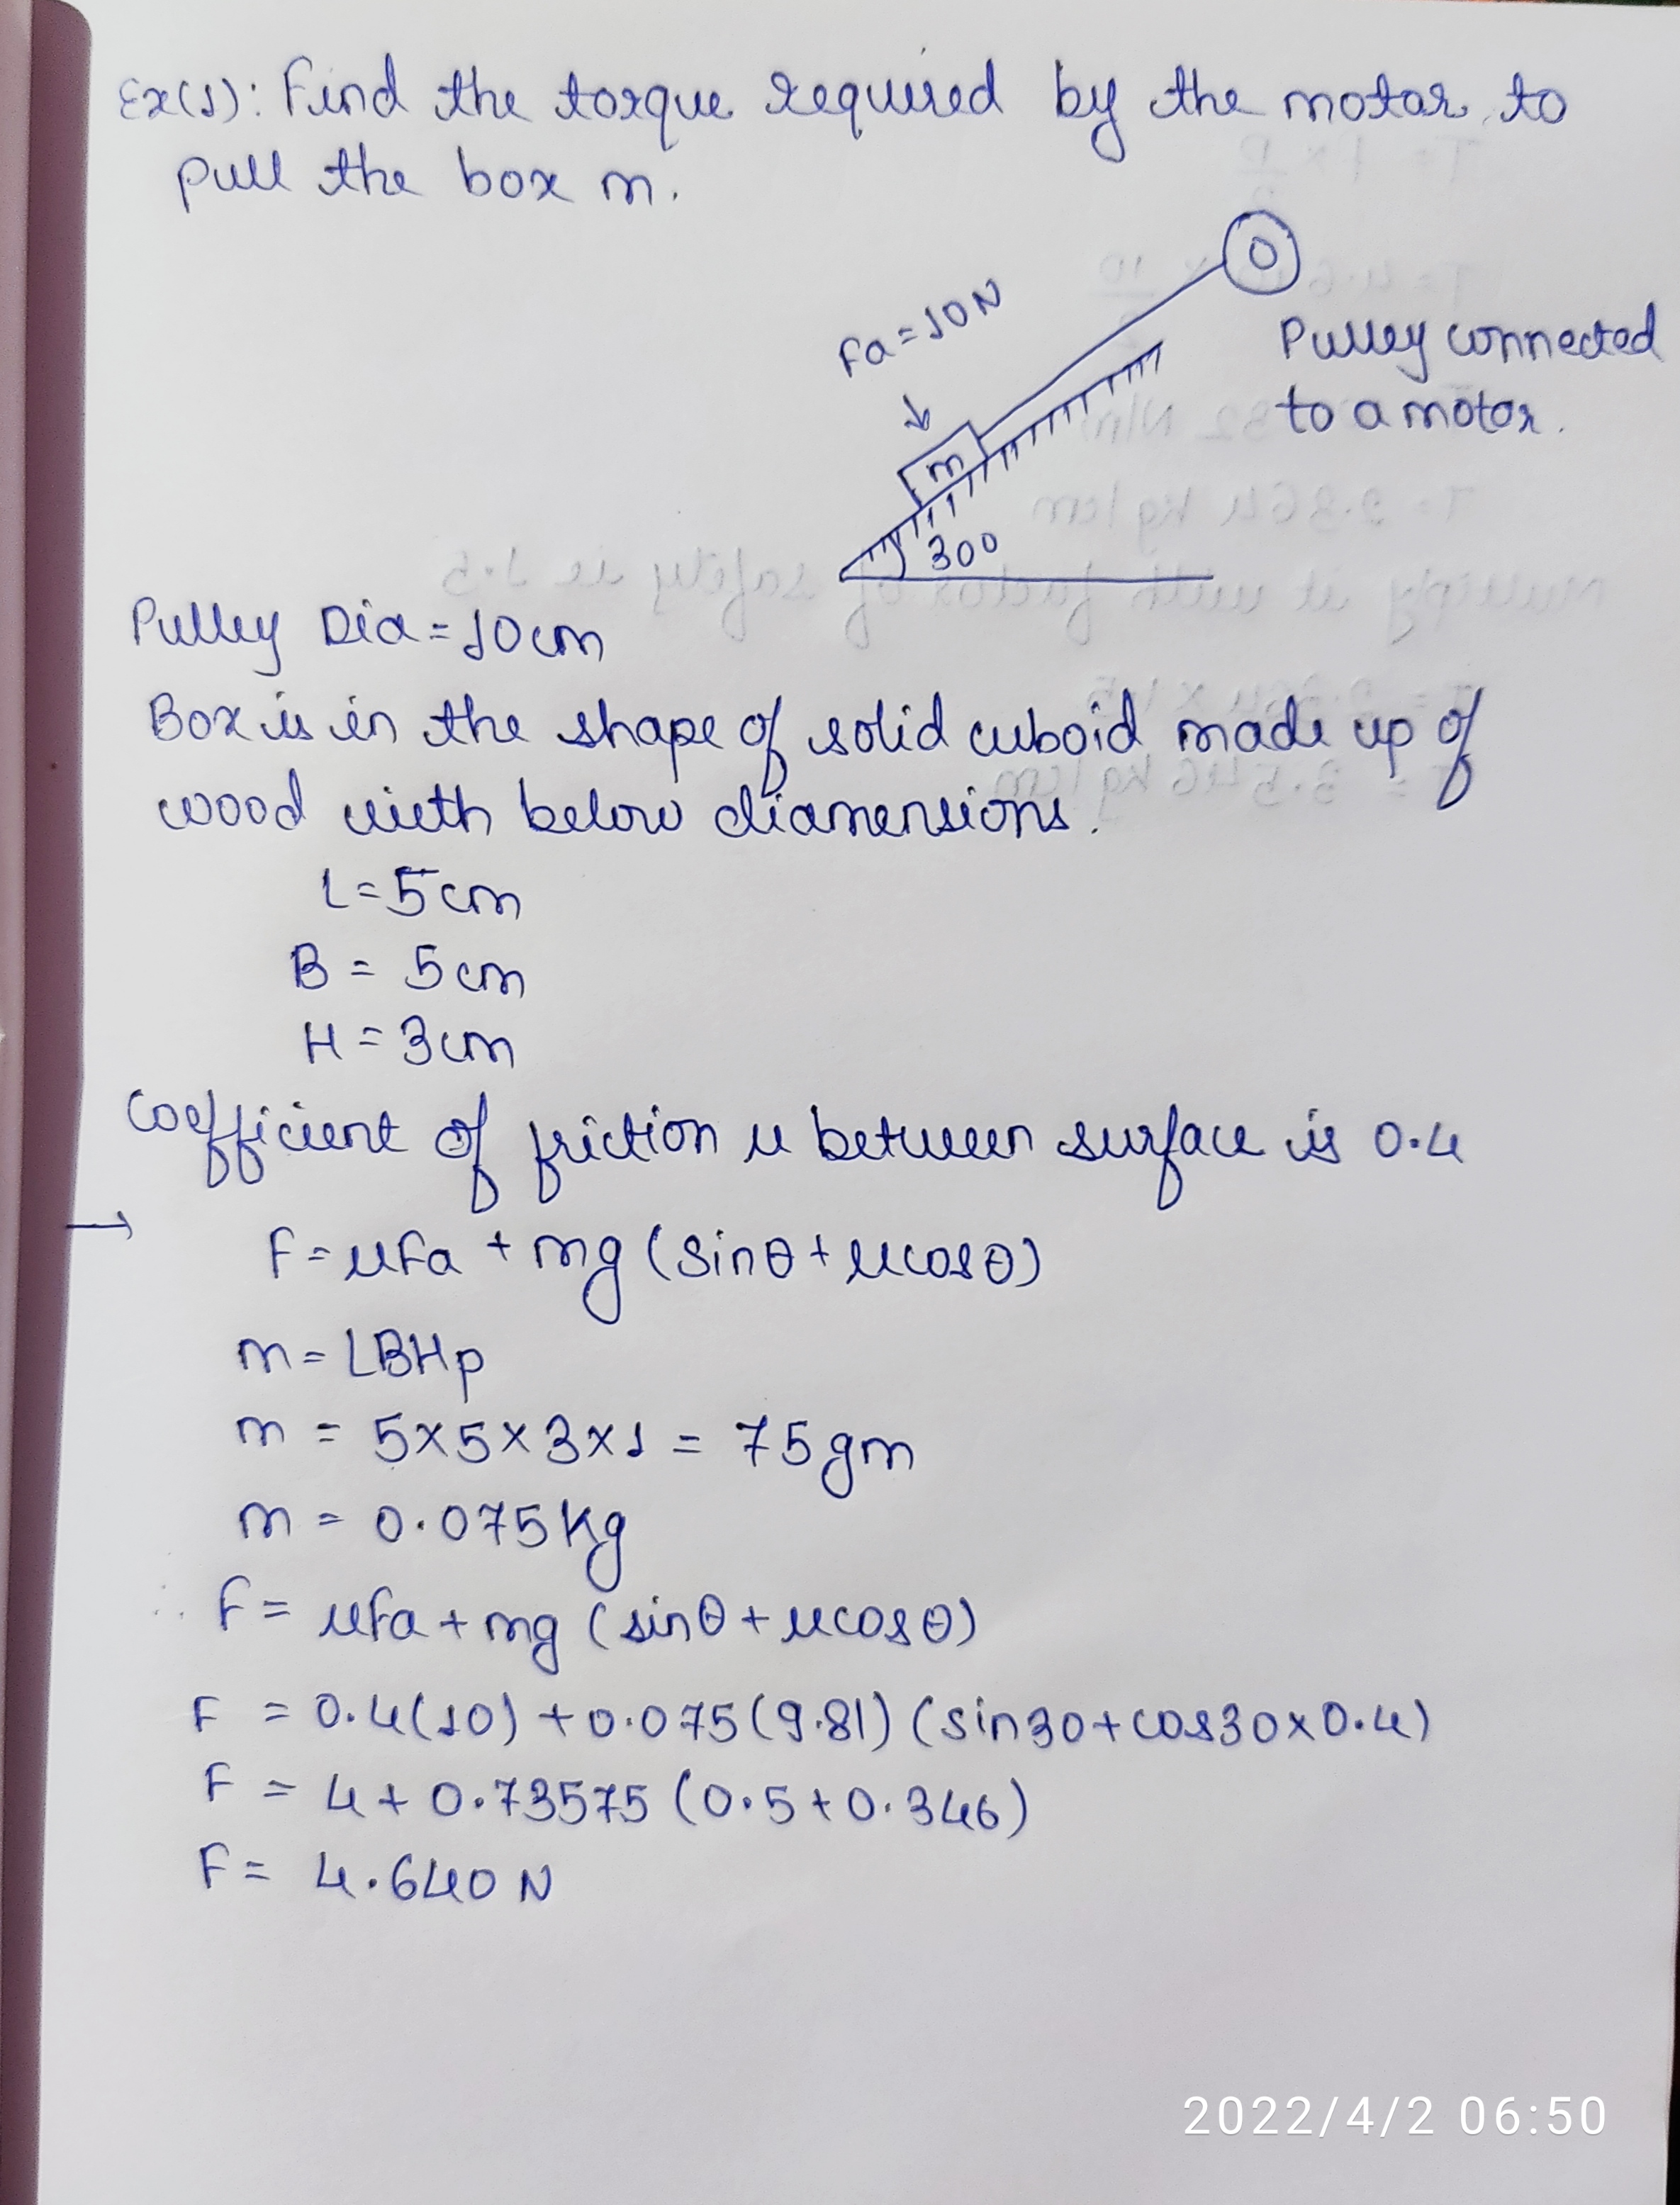 Ex(1): Find the torque required by the motor to
pull the box m.
Fa = 10N
m
30°
Pulley connected
to a motor.
Pulley Dia = 10cm
Box is in the shape of solid cuboid made up of
wood with below diamensions.
L = 5cm
B = 5cm
H = 3cm
Coefficient of friction μ between surface is 0.4
→
F = μFa + mg (sinθ + μcosθ)
m = LBHρ
m = 5×5×3×1 = 75gm
m = 0.075kg
∴ F = μFa + mg (sinθ + μcosθ)
F = 0.4(10) + 0.075(9.81) (sin30 + cos30×0.4)
F = 4 + 0.73575 (0.5 + 0.346)
F = 4.640 N
2022/4/2 06:50